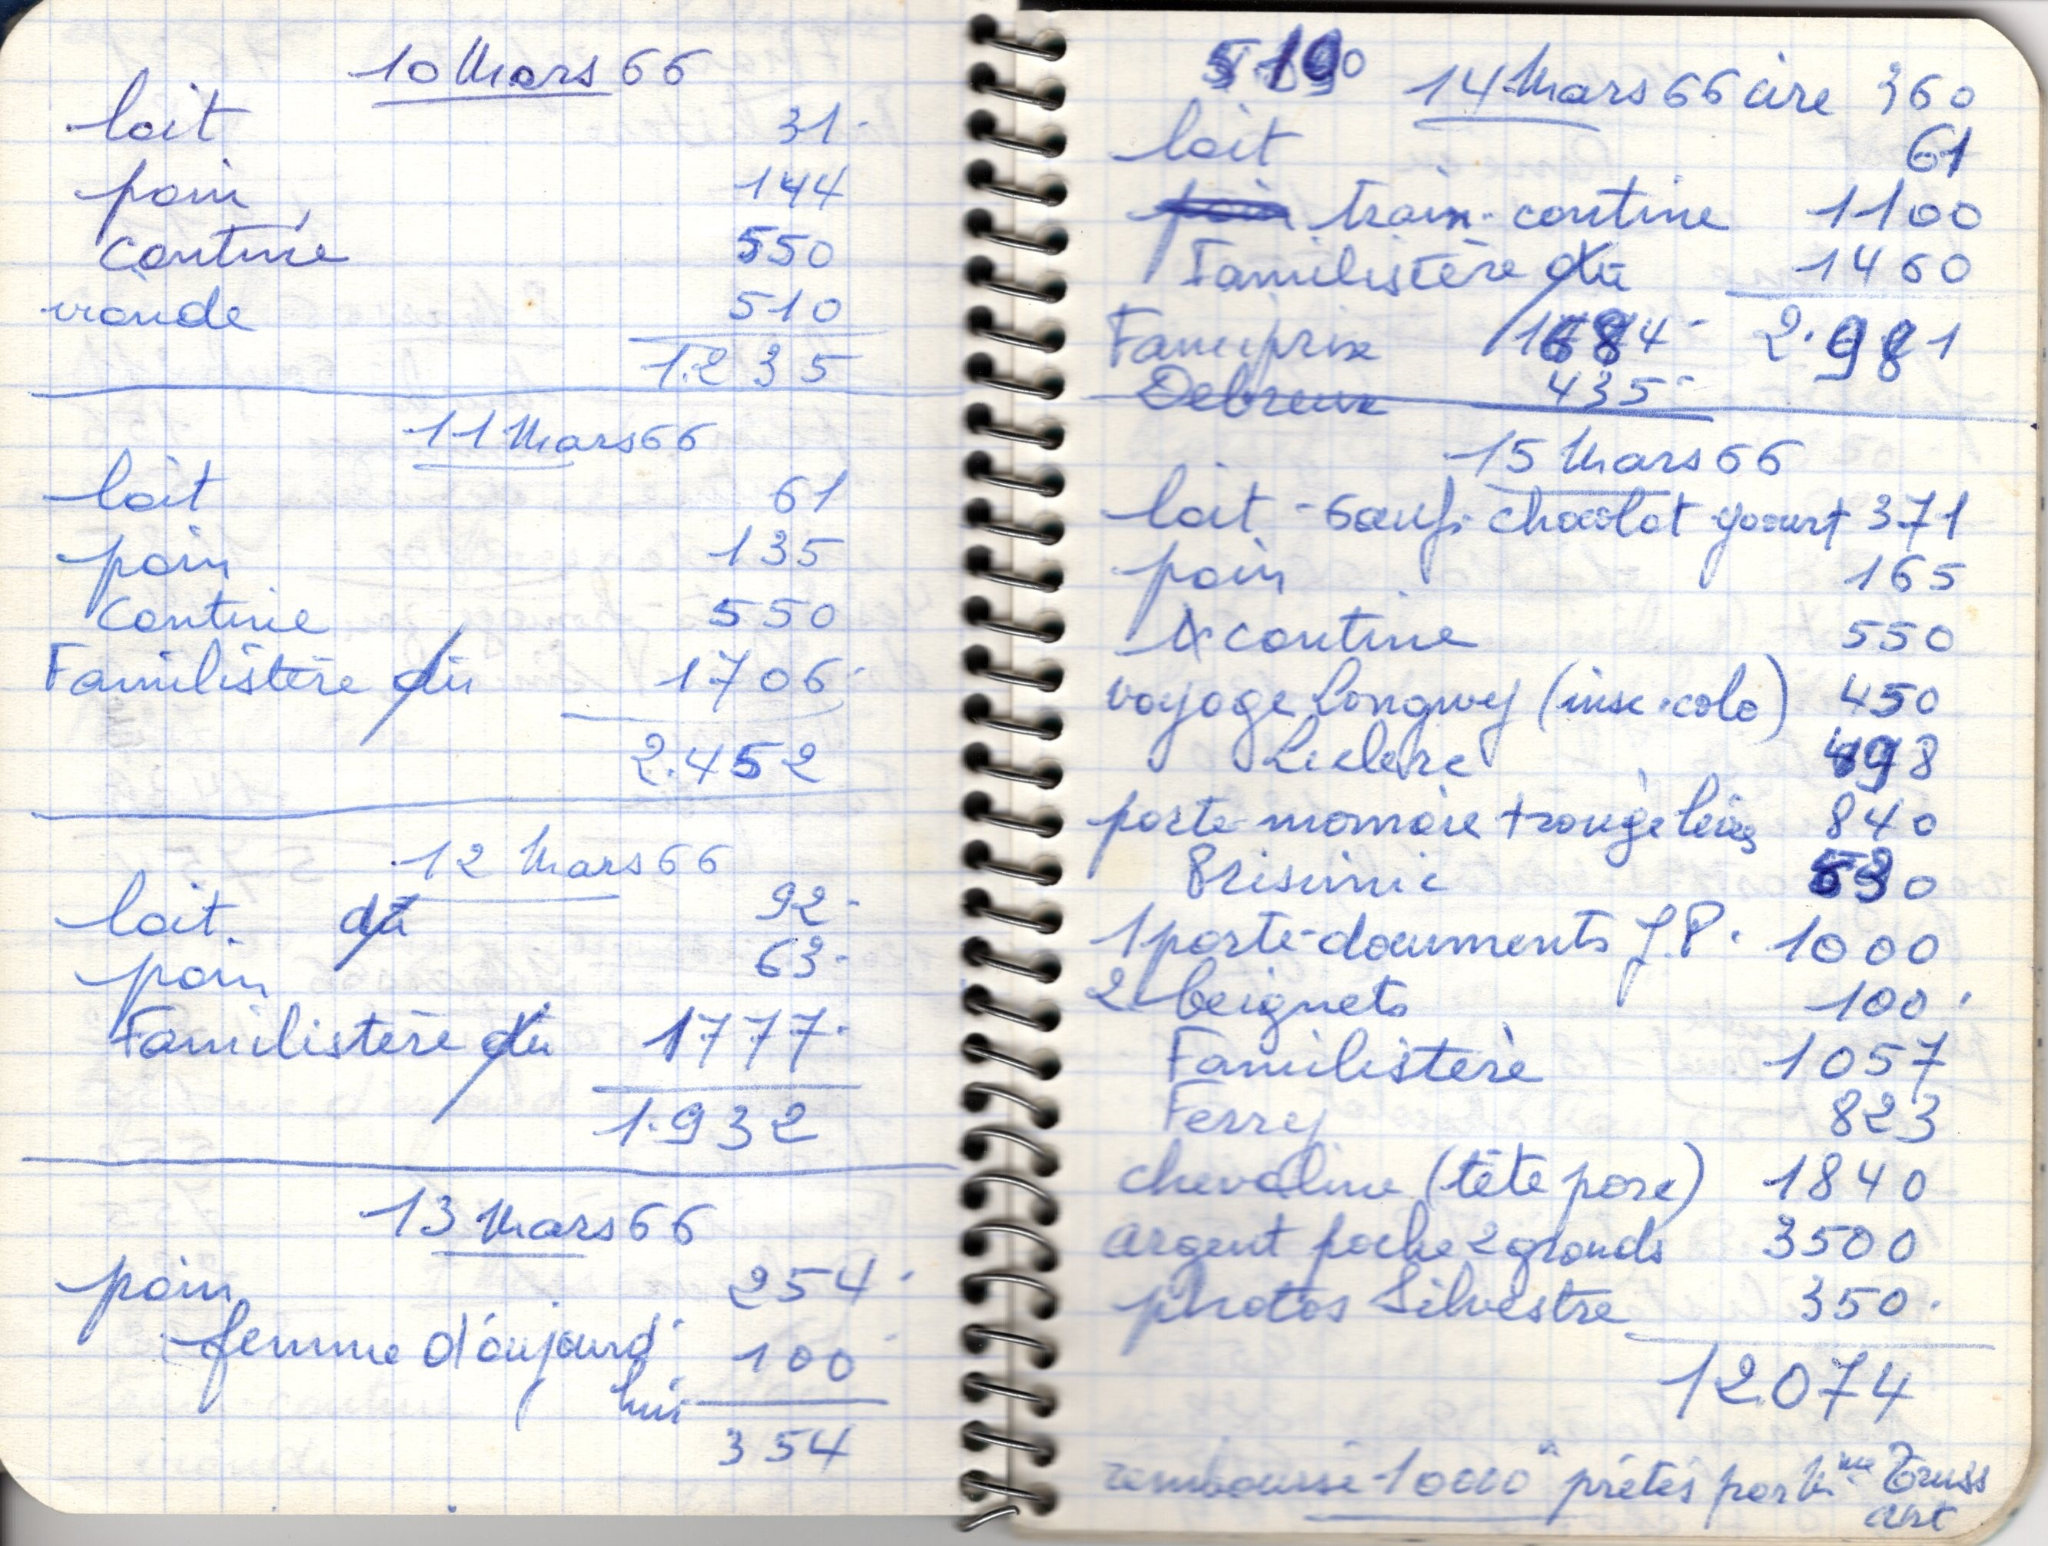 10 Mars 66
lait 31.
pain 144
cantine 550
viande 510
1.235
11 Mars 66
lait 61
pain 135
cantine 550
Familistère dû 1706.
2.452
12 Mars 66
lait. dû 92.
pain 63.
Familistère dû 1777.
1.932
13 Mars 66
pain 254.
femme d'aujourd' 100
hui
354
14 Mars 66 cire 360
lait 61
pain train. cantine 1100
Familistère dû 1460
Famiprix 1684. 2.981
Debreux 435.
15 Mars 66
lait - 6 oeufs. chocolat yaourt 371
pain 165
cantine 550
voyage Longwy (insc. colo) 450
Leclerc 498
porte-monnaie + rouge lèvres 840
Prisunic 530
1 porte-documents J.P. 1000
2 beignets 100.
Familistère 1057
Ferry 823
chevaline (tête porc) 1840
argent poche 2 grands 3500
photos Silvestre 350.
12074
remboursé 10000 prêtés par Mme